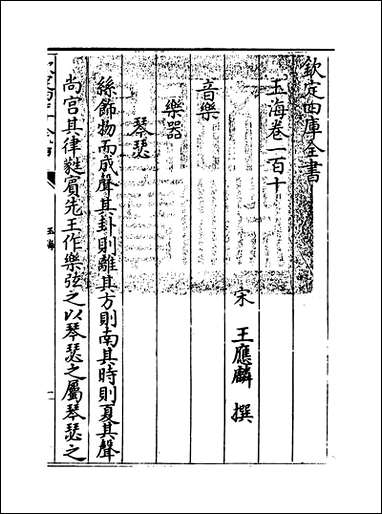 欽定四庫全書
玉海卷一百十
宋 王應麟 撰
音樂
樂器
琴瑟
絲飾物而成聲其卦則離其方則南其時則夏其聲
尚宮其律蕤賓先王作樂弦之以琴瑟之屬琴瑟之
玉海